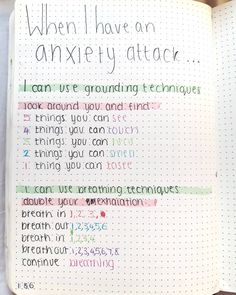 When I have an
anxiety attack...
I can use grounding techniques
look around you and find:
5 things you can see
4 things you can touch
3 things you can hear
2 things you can smell
1 thing you can taste
I can use breathing techniques
double your exhalation
breath in 1, 2, 3,
breath out 1,2,3,4,5,6
breath in 1,2,3,4
breath out 1,2,3,4,5,6,7,8
continue breathing